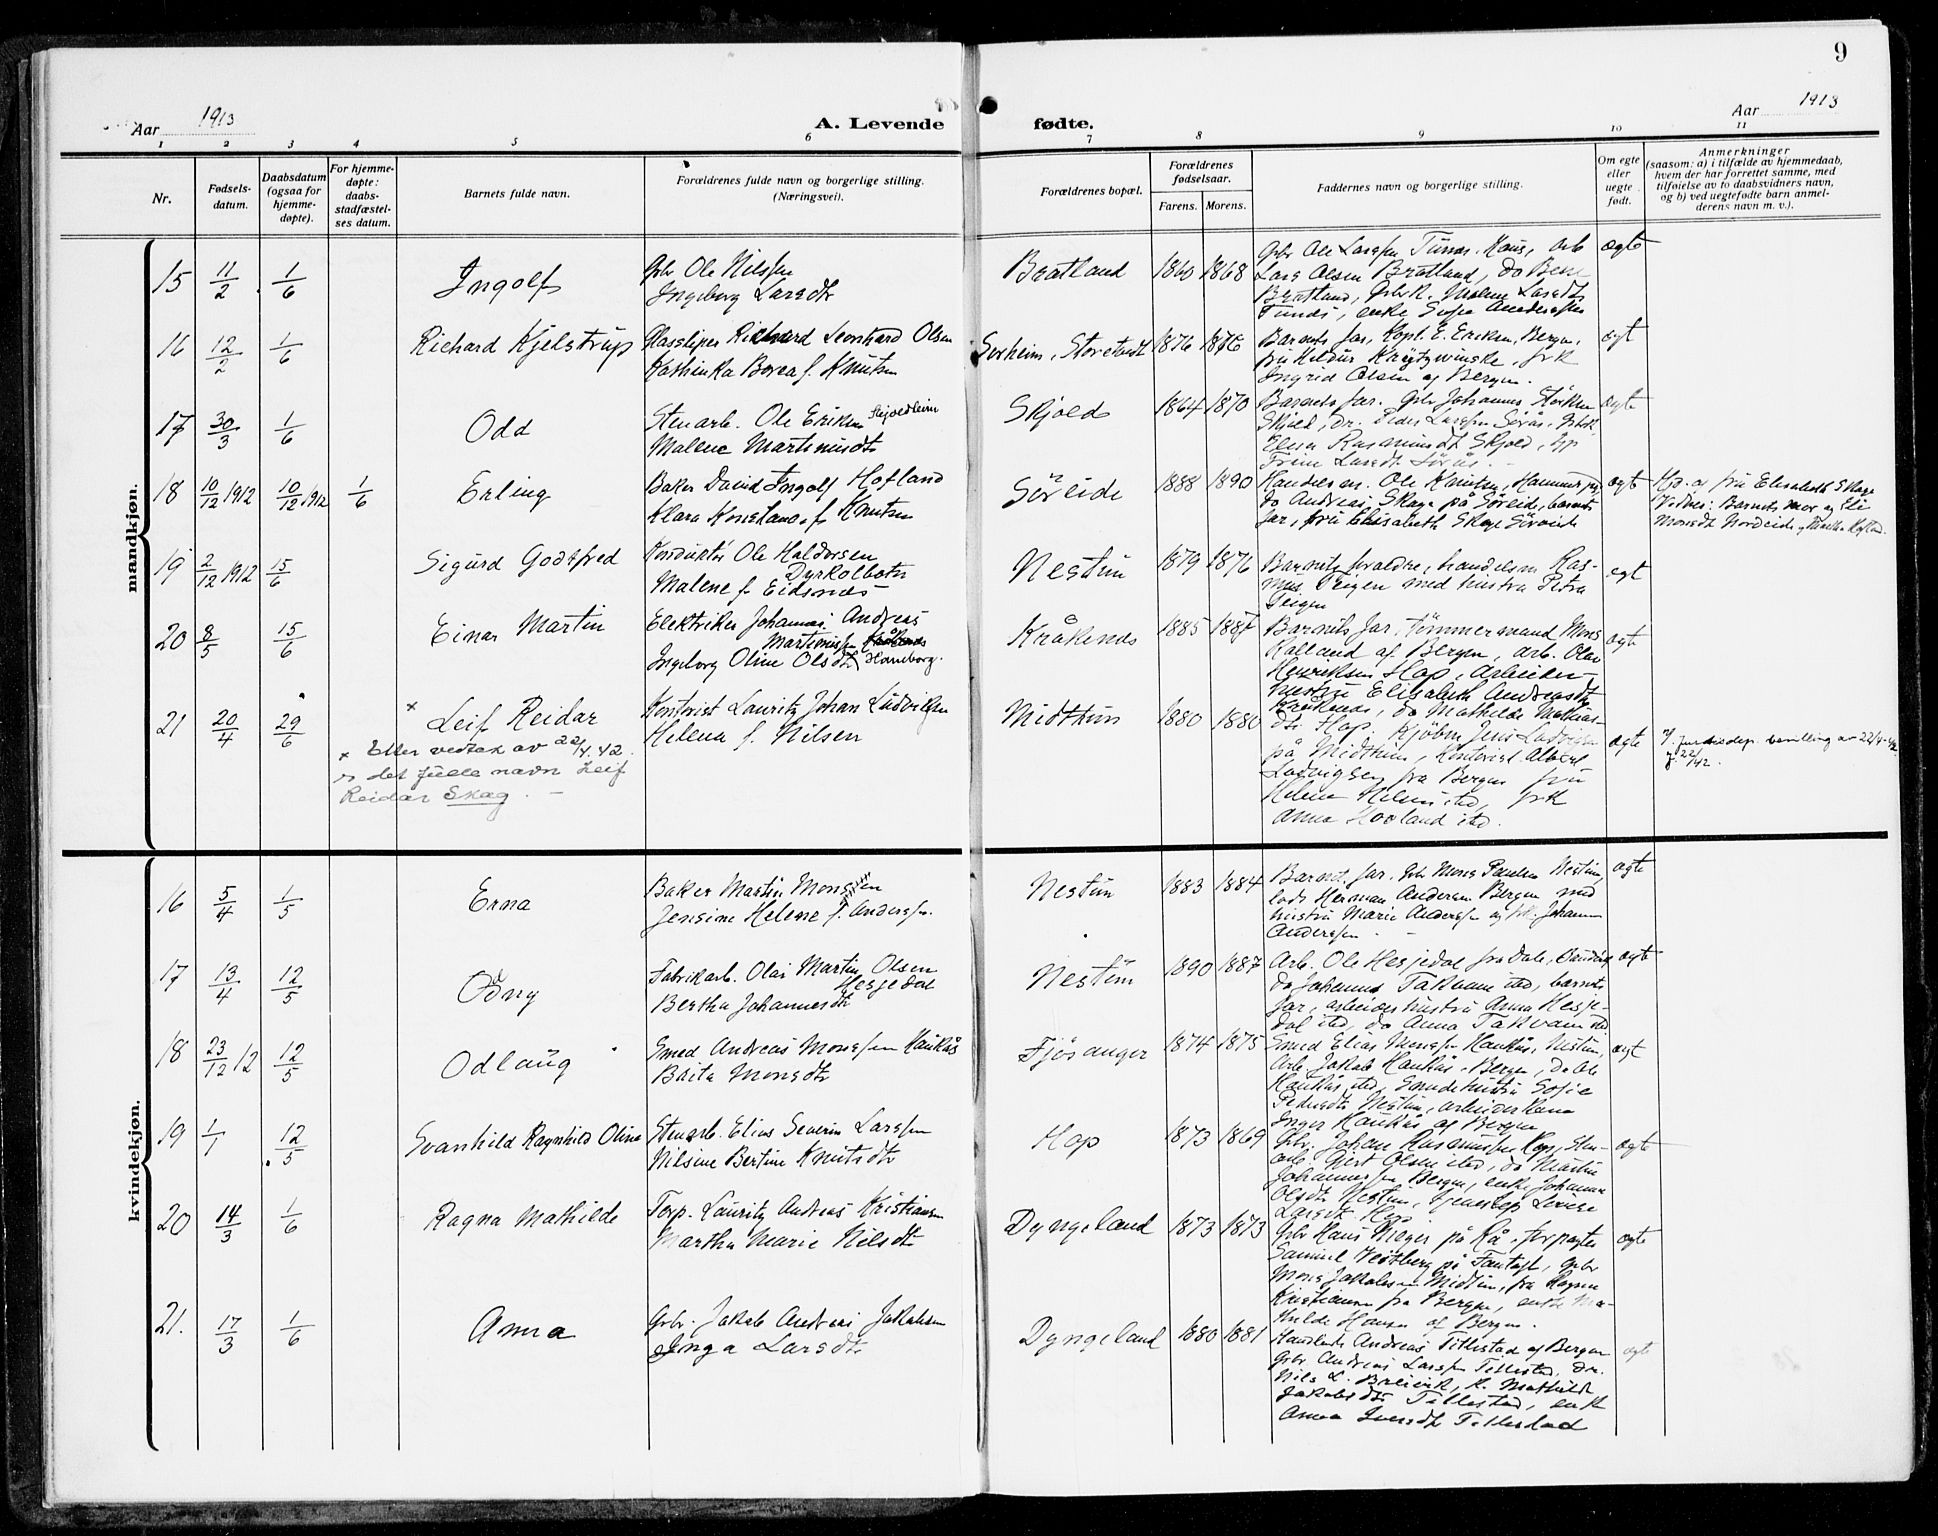 9
Aar 1913
A. Levende
fødte.
Aar 1913
1 2 3 4 5 6 7 8 9 10 11
Nr.
Fødsels-
datum.
Daabsdatum
(ogsaa for
hjemme-
døpte).
For hjemme-
døpte:
daabs-
stadfæstel-
ses datum.
Barnets fulde navn.
Forældrenes fulde navn og borgerlige stilling.
(Næringsvei).
Forældrenes bopæl.
Forældrenes
fødselsaar.
Farens. Morens.
Faddernes navn og borgerlige stilling.
Om egte
eller
uegte
født.
Anmerkninger
(saasom: a) i tilfælde av hjemmedaab,
hvem der har forrettet samme, med
tilføielse av to daabsvidners navn,
og b) ved uegtefødte barn anmel-
derens navn m. v.).
mandkjøn.
15 11/2 1/6 Ingolf
Gbr Ole Nilssen
Ingeborg Larsdtr
Bratland 1860 1868
Gbr Ole Larssen Tunes, Haus, Arb
Lars Olsen Bratland, do Bene
Bratland, Gbrk. Malene Larsdtr
Tunes, enke Sofie Anderssen
ægte
16 12/2 1/6 Richard Kjelstrup
Glassliper Richard Leonhard Olsen
Kathinka Borea f. Knutsen
Sorheim, Storetvedt 1876 1876
Barnets far, Kapt. E. Eriksen, Bergen,
fru Hildur
Ingrid Olsen af Bergen.
egt
17 30/3 1/6 Odd
Stenarb. Ole Eriksen Skjoldheim
Malene Martinusdtr
Skjold 1864 1870
Barnets far. Gbr Johannes
Skjold, Larssen Sørås, Gbrk.
Rasmusdtr Skjold,
Trine Larsdtr Sørås.
ægte
18 10/12 1912 10/12 1912 1/6 Erling
Baker David Ingolf Hofland
Klara Konstanse f. Knutsen
Söreide 1888 1890
Handelsm. Ole Knutsen, Hammer
do Andreas Skage på Söreide, barnets
far, fru Elisabeth Skage Söreide
egt
Hjd. af fru Elisabeth Skage
Vidner: Barnets mor og Eli
Monsdtr Nordeide og Martha Hofland.
19 2/12 1912 15/6 Sigurd Godtfred
Konduktör Ole Haldorsen
Dyrkolbotn
Malene f. Eidsnes
Nestun 1879 1876
Barnets foreldre, handelsm Ras-
mus Teigen med hustru Petra
Teigen
egt
20 8/5 15/6 Einar Martin
Elektriker Johannes Andreas
Martinussen Kråkenes
Ingeborg Oline Olsdtr Hamborg.
Kråkenes 1885 1887
Barnets far, tømmermand Mons
Kalland af Bergen, arb. Olav
Henriksen Hop, Arbeider-
hustru Elisabeth Andreasdtr
Kråkenes, do Mathilde Mathias-
dtr Hop.
egt
21 20/4 29/6 × Leif Reidar
× Etter vedtak av 22/4. 42.
er det fulle navn Leif
Reidar Skag. —
Kontorist Lauritz Johan Ludvigsen
Helena f. Nilsen
Midthun 1880 1880
Kjøbm Jens Ludvigsen
på Midthun, Kontorist Albert
Ludvigsen fra Bergen fru
Helene Helmi sted, frk
Anna Hovland sted.
ægte
Justisdep. bevilling av 22/4-42
kvindekjøn.
16 5/4 1/5 Erna
Baker Martin Monssen
Jensine Helene f. Anderssen.
Nestun 1883 1884
Barnets far, Gbr Mons Paulsen Nestun,
lods Herman Andersen Bergen med
hustru Marie Anderssen og frk. Johanne
Anderssen
ægte
17 13/4 12/5 Odny
Fabrikarb. Olai Martin Olsen
Hesjedal
Bertha Johannesdtr
Nestun 1890 1887
Arb. Ole Hesjedal fra Dale,
do Johannes Takvam sted, barnets
far, arbeiderhustru Anna Hesje-
dal sted, do Anna Takvam sted
ægte
18 23/12 12 12/5 Odlaug
Smed Andreas Monssen Haukås
Brita Monsdtr
Fjösanger 1874 1875
Smed Elias Monssen Haukås, Nestun,
Arb. Jakob Haukås, Bergen, do Ole
Haukås sted, Smedehustru Sofie
Pedersdtr Nestun, arbeiderkone
Inger Haukås af Bergen
egt
19 1/1 12/5 Svanhild Ragnhild Olina
Stenarb. Elias Severin Larssen
Nilsine Bertine Knutsdtr
Hop 1873 1869
Gbr. Johan Rasmussen Hop, Sten-
arb. Olsen sted, do Martin
Johannessen Bergen, enke Johanna
Olsdtr Nestun, tjenestep Lovise
Larsdtr Hop
ægte
20 14/3 1/6 Ragna Mathilde
Forp. Lauritz Andreas Kristiansen
Martha Marie Nilsdtr
Dyngeland 1873 1873
Gbr Hans Rieger på Rå, forpagter
Samuel på Fantoft, Gbr
Mons Jakobsen Midtun, fru Ragna
Kristiansen fra Bergen, enke Ma-
thilde Hansen af Bergen.
ægte
21. 17/3 1/6 Anna
Gbr. Jakob Andreas Jakobsen
Inga Larsdtr
Dyngeland 1880 1881
Handlende Andreas Tillestad af Bergen
Gbr Andreas Larssen Tellestad, do.
Nils L. Breivik, k. Mathilde
Jakobsdtr Tellestad, enke
Anna Iversdtr Tellestad
egte